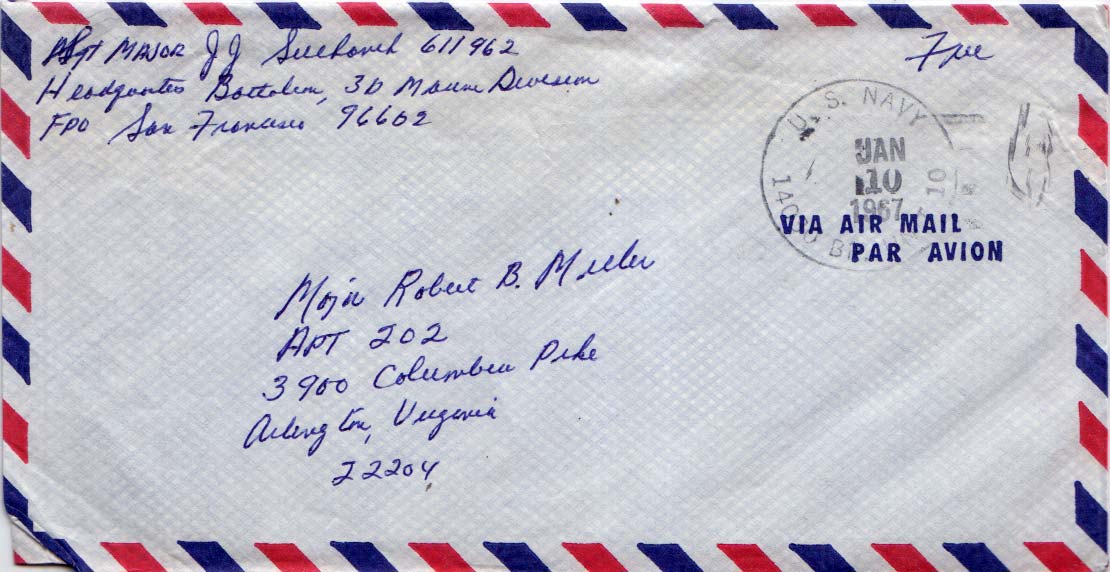 Sgt MAJOR JJ 611962
Headquarters Battalion, 3D Marine Division
FPO San Francisco 96602
Free
U. S. NAVY
JAN
10
1967
10
VIA AIR MAIL
PAR AVION
Major Robert B. Miller
APT 202
3900 Columbia Pike
Arlington, Virginia
22204